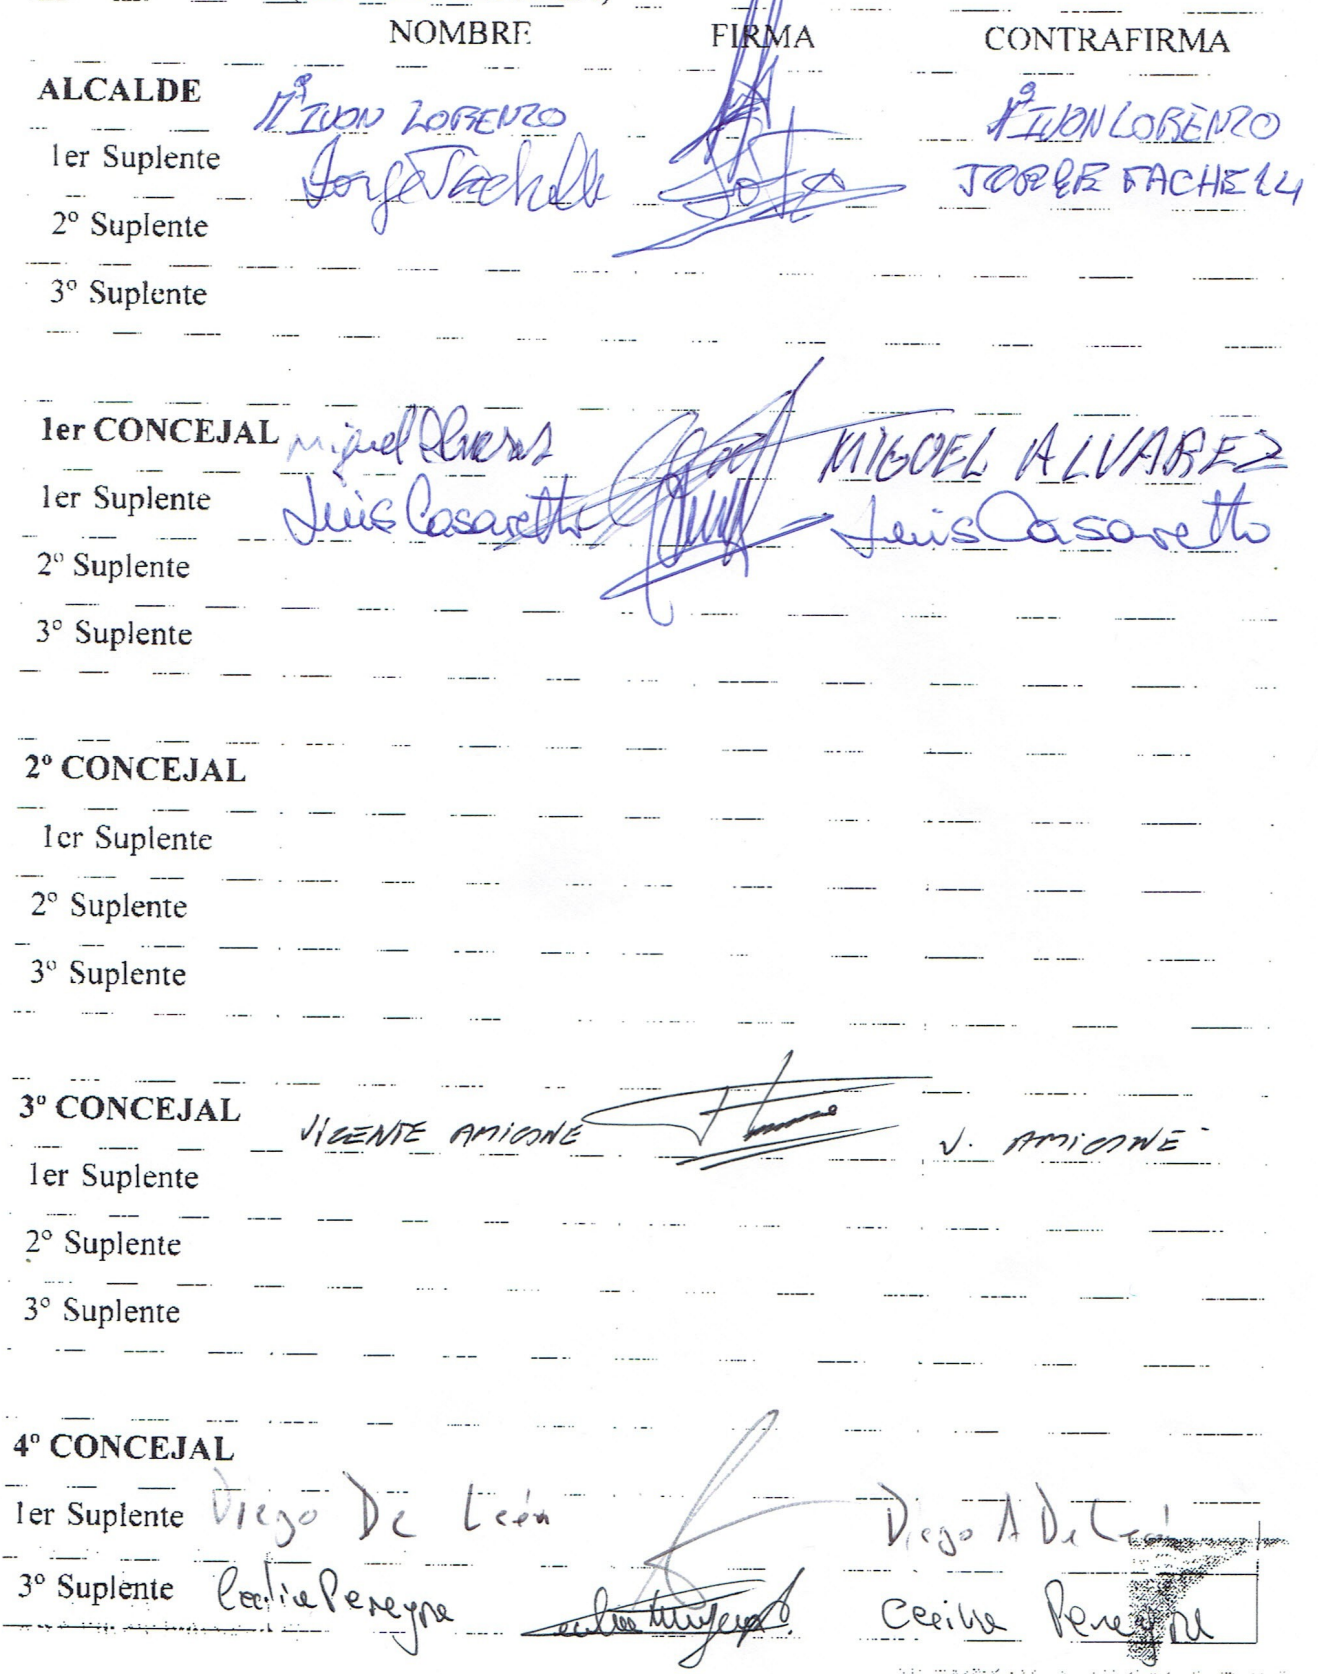 NOMBRE FIRMA CONTRAFIRMA
ALCALDE Mª IVON LORENZO Mª IVON LORENZO
1er Suplente Jorge Fachelli JORGE FACHELLI
2º Suplente
3º Suplente
1er CONCEJAL Miguel Alvarez MIGUEL ALVAREZ
1er Suplente Luis Casaretto Luis Casaretto
2º Suplente
3º Suplente
2º CONCEJAL
1er Suplente
2º Suplente
3º Suplente
3º CONCEJAL VICENTE AMICONE V. AMICONE
1er Suplente
2º Suplente
3º Suplente
4º CONCEJAL
1er Suplente Diego De León Diego A De León
3º Suplente Cecilia Pereyra Cecilia Pereyra